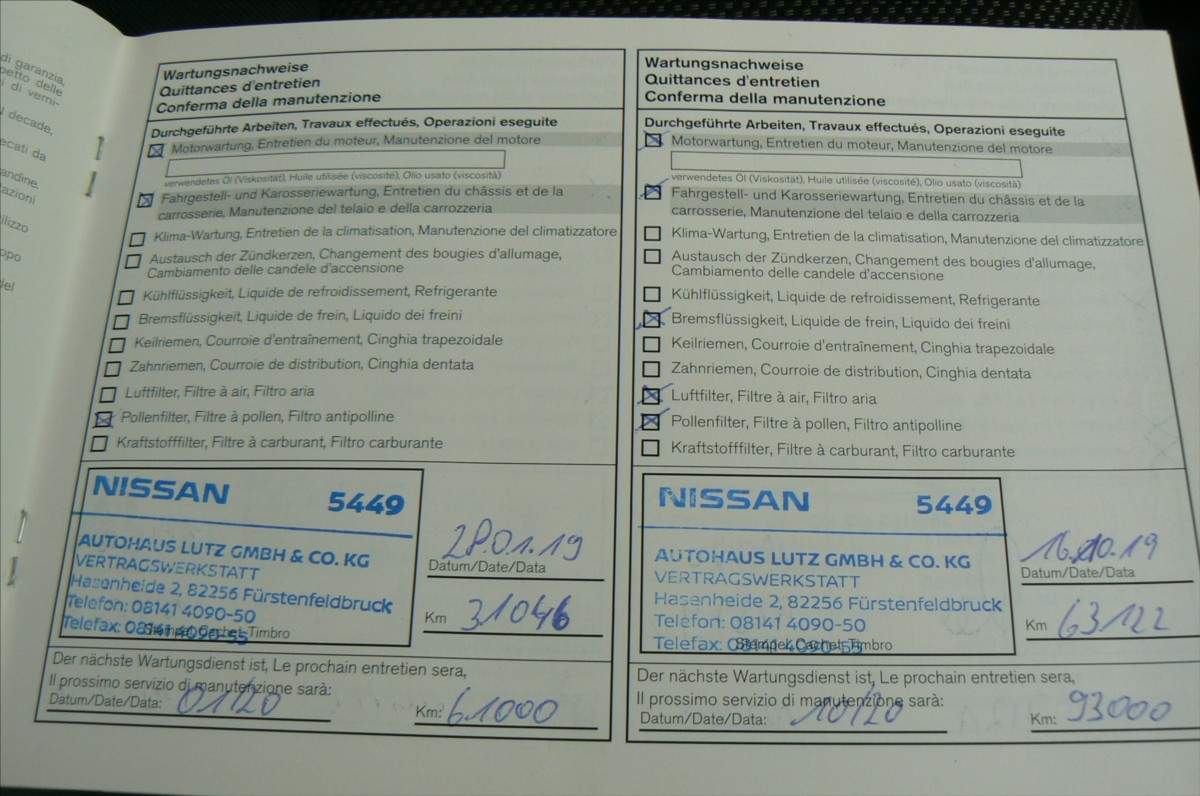 di garanzia,
petto delle
i di verni-
decade,
ecati da
andine.
azioni
ilizzo
opo
del
Wartungsnachweise
Quittances d'entretien
Conferma della manutenzione
Durchgeführte Arbeiten, Travaux effectués, Operazioni eseguite
Motorwartung, Entretien du moteur, Manutenzione del motore
verwendetes Öl (Viskosität), Huile utilisée (viscosité), Olio usato (viscosità)
Fahrgestell- und Karosseriewartung, Entretien du châssis et de la
carrosserie, Manutenzione del telaio e della carrozzeria
Klima-Wartung, Entretien de la climatisation, Manutenzione del climatizzatore
Austausch der Zündkerzen, Changement des bougies d'allumage,
Cambiamento delle candele d'accensione
Kühlflüssigkeit, Liquide de refroidissement, Refrigerante
Bremsflüssigkeit, Liquide de frein, Liquido dei freini
Keilriemen, Courroie d'entraînement, Cinghia trapezoidale
Zahnriemen, Courroie de distribution, Cinghia dentata
Luftfilter, Filtre à air, Filtro aria
Pollenfilter, Filtre à pollen, Filtro antipolline
Kraftstofffilter, Filtre à carburant, Filtro carburante
NISSAN 5449
AUTOHAUS LUTZ GMBH & CO. KG
VERTRAGSWERKSTATT
Hasenheide 2, 82256 Fürstenfeldbruck
Telefon: 08141 4090-50
Telefax: 08141 4090-55
Stempel, Cachet, Timbro
28.01.19
Datum/Date/Data
Km 31046
Der nächste Wartungsdienst ist, Le prochain entretien sera,
Il prossimo servizio di manutenzione sarà:
Datum/Date/Data: 01/20 Km: 61000
Wartungsnachweise
Quittances d'entretien
Conferma della manutenzione
Durchgeführte Arbeiten, Travaux effectués, Operazioni eseguite
Motorwartung, Entretien du moteur, Manutenzione del motore
verwendetes Öl (Viskosität), Huile utilisée (viscosité), Olio usato (viscosità)
Fahrgestell- und Karosseriewartung, Entretien du châssis et de la
carrosserie, Manutenzione del telaio e della carrozzeria
Klima-Wartung, Entretien de la climatisation, Manutenzione del climatizzatore
Austausch der Zündkerzen, Changement des bougies d'allumage,
Cambiamento delle candele d'accensione
Kühlflüssigkeit, Liquide de refroidissement, Refrigerante
Bremsflüssigkeit, Liquide de frein, Liquido dei freini
Keilriemen, Courroie d'entraînement, Cinghia trapezoidale
Zahnriemen, Courroie de distribution, Cinghia dentata
Luftfilter, Filtre à air, Filtro aria
Pollenfilter, Filtre à pollen, Filtro antipolline
Kraftstofffilter, Filtre à carburant, Filtro carburante
NISSAN 5449
AUTOHAUS LUTZ GMBH & CO. KG
VERTRAGSWERKSTATT
Hasenheide 2, 82256 Fürstenfeldbruck
Telefon: 08141 4090-50
Telefax: 08141 4090-55
Stempel, Cachet, Timbro
16.10.19
Datum/Date/Data
Km 63122
Der nächste Wartungsdienst ist, Le prochain entretien sera,
Il prossimo servizio di manutenzione sarà:
Datum/Date/Data: 10/20 Km: 93000